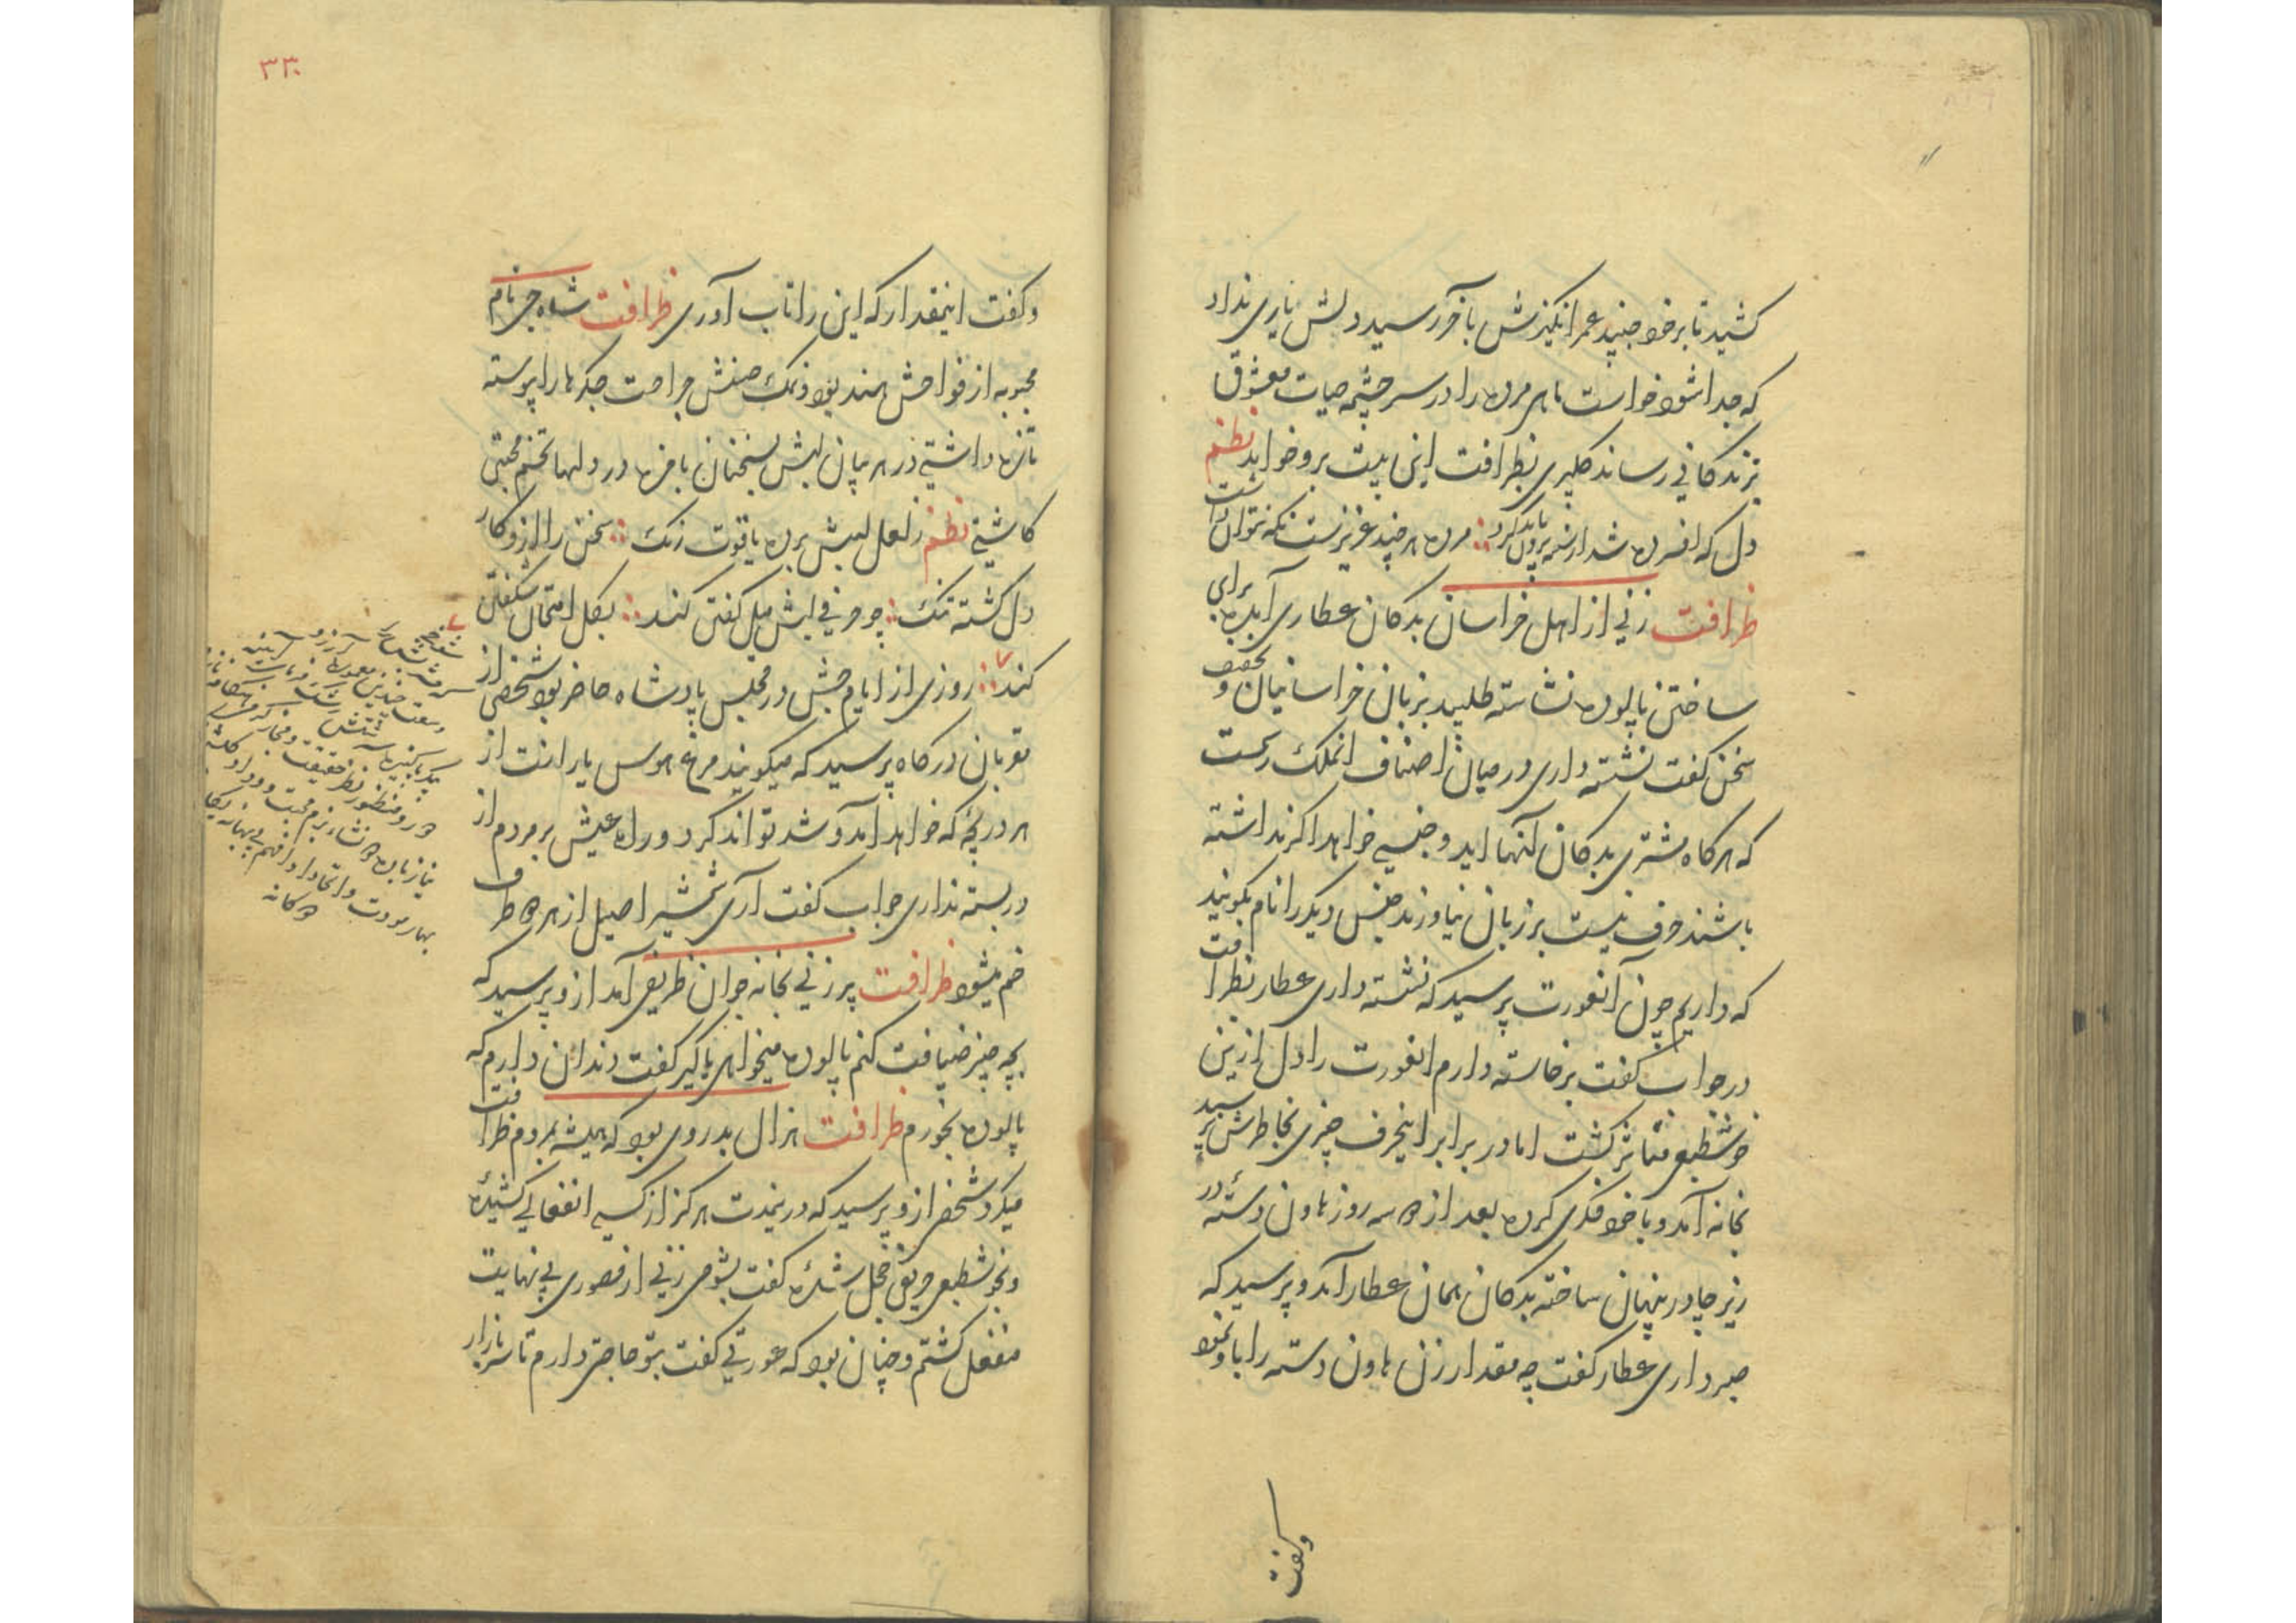 کشید تا بر خود جنبید عمر انگیزش بآخر رسید دلش یاری نداد
که جدا شود خواست ماهی مرده را در سرچشمه حیات معشوق
بزندکانی رساند کلیری بظرافت این بیت برو خواند نظم
دل که افسرده شد از سینه برون باید کرد مرده هر چند عزیزست نکه نتوان داشت
ظرافت زنی از اهل خراسان بدکان عطاری آمد برای
ساختن پالوده نشاسته طلبید بزبان خراسانیان و تخفیف
سخن کفت نشسته داری در میان اصناف آنملک رسمست
که هرکاه مشتری بدکان آنها اید و جنسی خواهد اکر نداشته
باشند حرف نیست بر زبان نیاورند جنس دیکر را نام بکویند
که داریم چون آنعورت پرسید که نشسته داری عطار بظرافت
در جواب کفت برخاسته دارم انعورت را دل ازین
خوشطبعی متاثر کشت اما در برابر اینحرف چیزی بخاطرش نرسید
بخانه آمد و با خود فکری کرده بعد از دو سه روز هاون دسته در
زیر چادر پنهان ساخته بدکان همان عطار آمد و پرسید که
صبر داری عطار کفت چه مقدار زن هاون دسته را باو نمود
وکفت
۳۳۰
وکفت اینمقدار که این را تاب آوری ظرافت شاه جی نام
محبوبه از فواحش هند بود ونمک حسنش جراحت جکرها را پیوسته
تازه داشتی در هر بیان لبش بسخنان بامزه در دلها تخم محبتی
کاشتی نظم ز لعل لبش برده یاقوت رنک سخن را ازو کار
دل کشته تنک چو حرفی لبش میل کفتن کند بکل امتحان شکفتن
کند روزی از ایام جشن در مجلس پادشاه حاضر بود شخصی از
مقربان درکاه پرسید که میکویند مرغ هوس یارانت از
هر دریچه که خواهد آمد و شد تواند کرد و راه عیش بر مردم از
در بسته نداری جواب کفت آری شمشیر اصیل از هر دو طرف
خم میشود ظرافت پیر زنی بخانه جوان ظریفی آمد ازو پرسید که
بچه چیز ضیافت کنم پالوده میخواهی یا کیر کفت دندان دارم که
پالوده بخورم ظرافت هزال بدروی بود که همیشه بمردم ظرافت
میکرد شخصی ازو پرسید که درینمدت هرکز از کسی انفعالی کشیده
وبخوشطبعی حریفی خجل شده کفت بشومی زنی از قصوری بی نهایت
منفعل کشتم وچنان بود که عورتی کفت بتو حاجتی دارم تا سر بازار